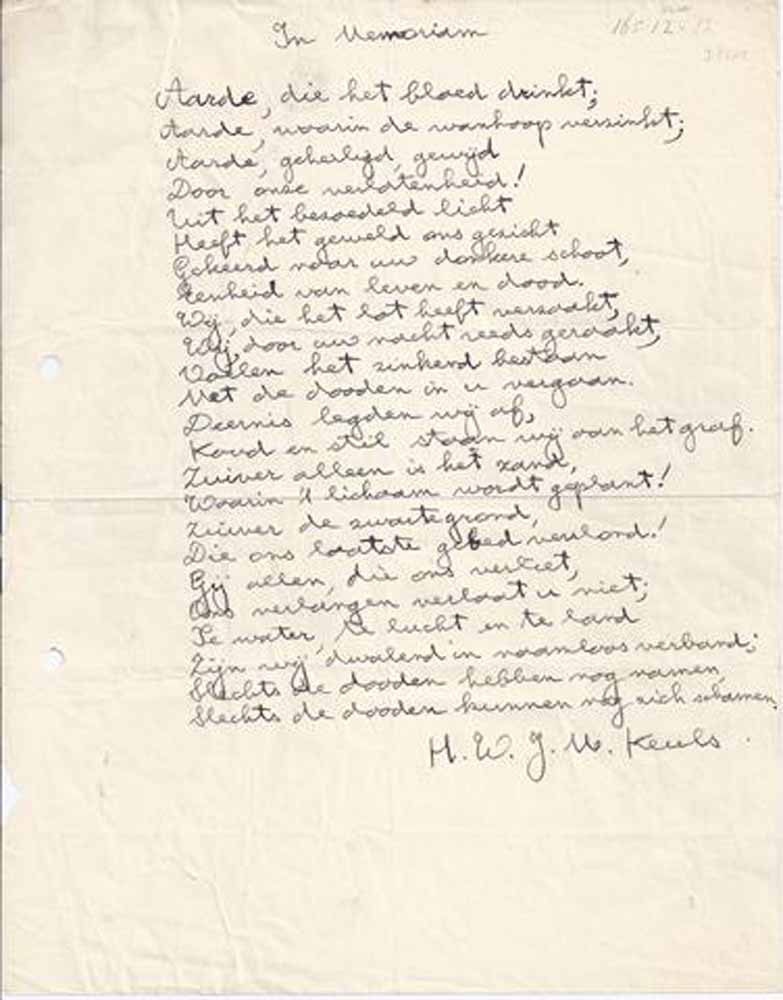 In Memoriam
Aarde, die het bloed drinkt;
Aarde, waarin de wanhoop verzinkt;
Aarde, geheiligd, gewijd
Door onze verlatenheid!
Uit het bezoedeld licht
Heeft het geweld ons gezicht
Gekeerd naar uw donkere schoot,
Eenheid van leven en dood.
Wij, die het lot heeft verzaakt,
Wij, door uw nacht reeds geraakt,
Voelen het zinkend bestaan
Met de dooden in u vergaan.
Deernis legden wij af,
Koud en stil staan wij aan het graf.
Zuiver alleen is het zand,
Waarin 't lichaam wordt geplant!
Zuiver de zwarte grond,
Die ons laatste gebed verslond!
Gij allen, die ons verliet,
Ons verlangen verlaat u niet;
Te water, te lucht en te land
Zijn wij dwalend in naamloos verband;
Slechts de dooden hebben nog namen,
Slechts de dooden kunnen nog zich schamen.
H. W. J. M. Keuls.